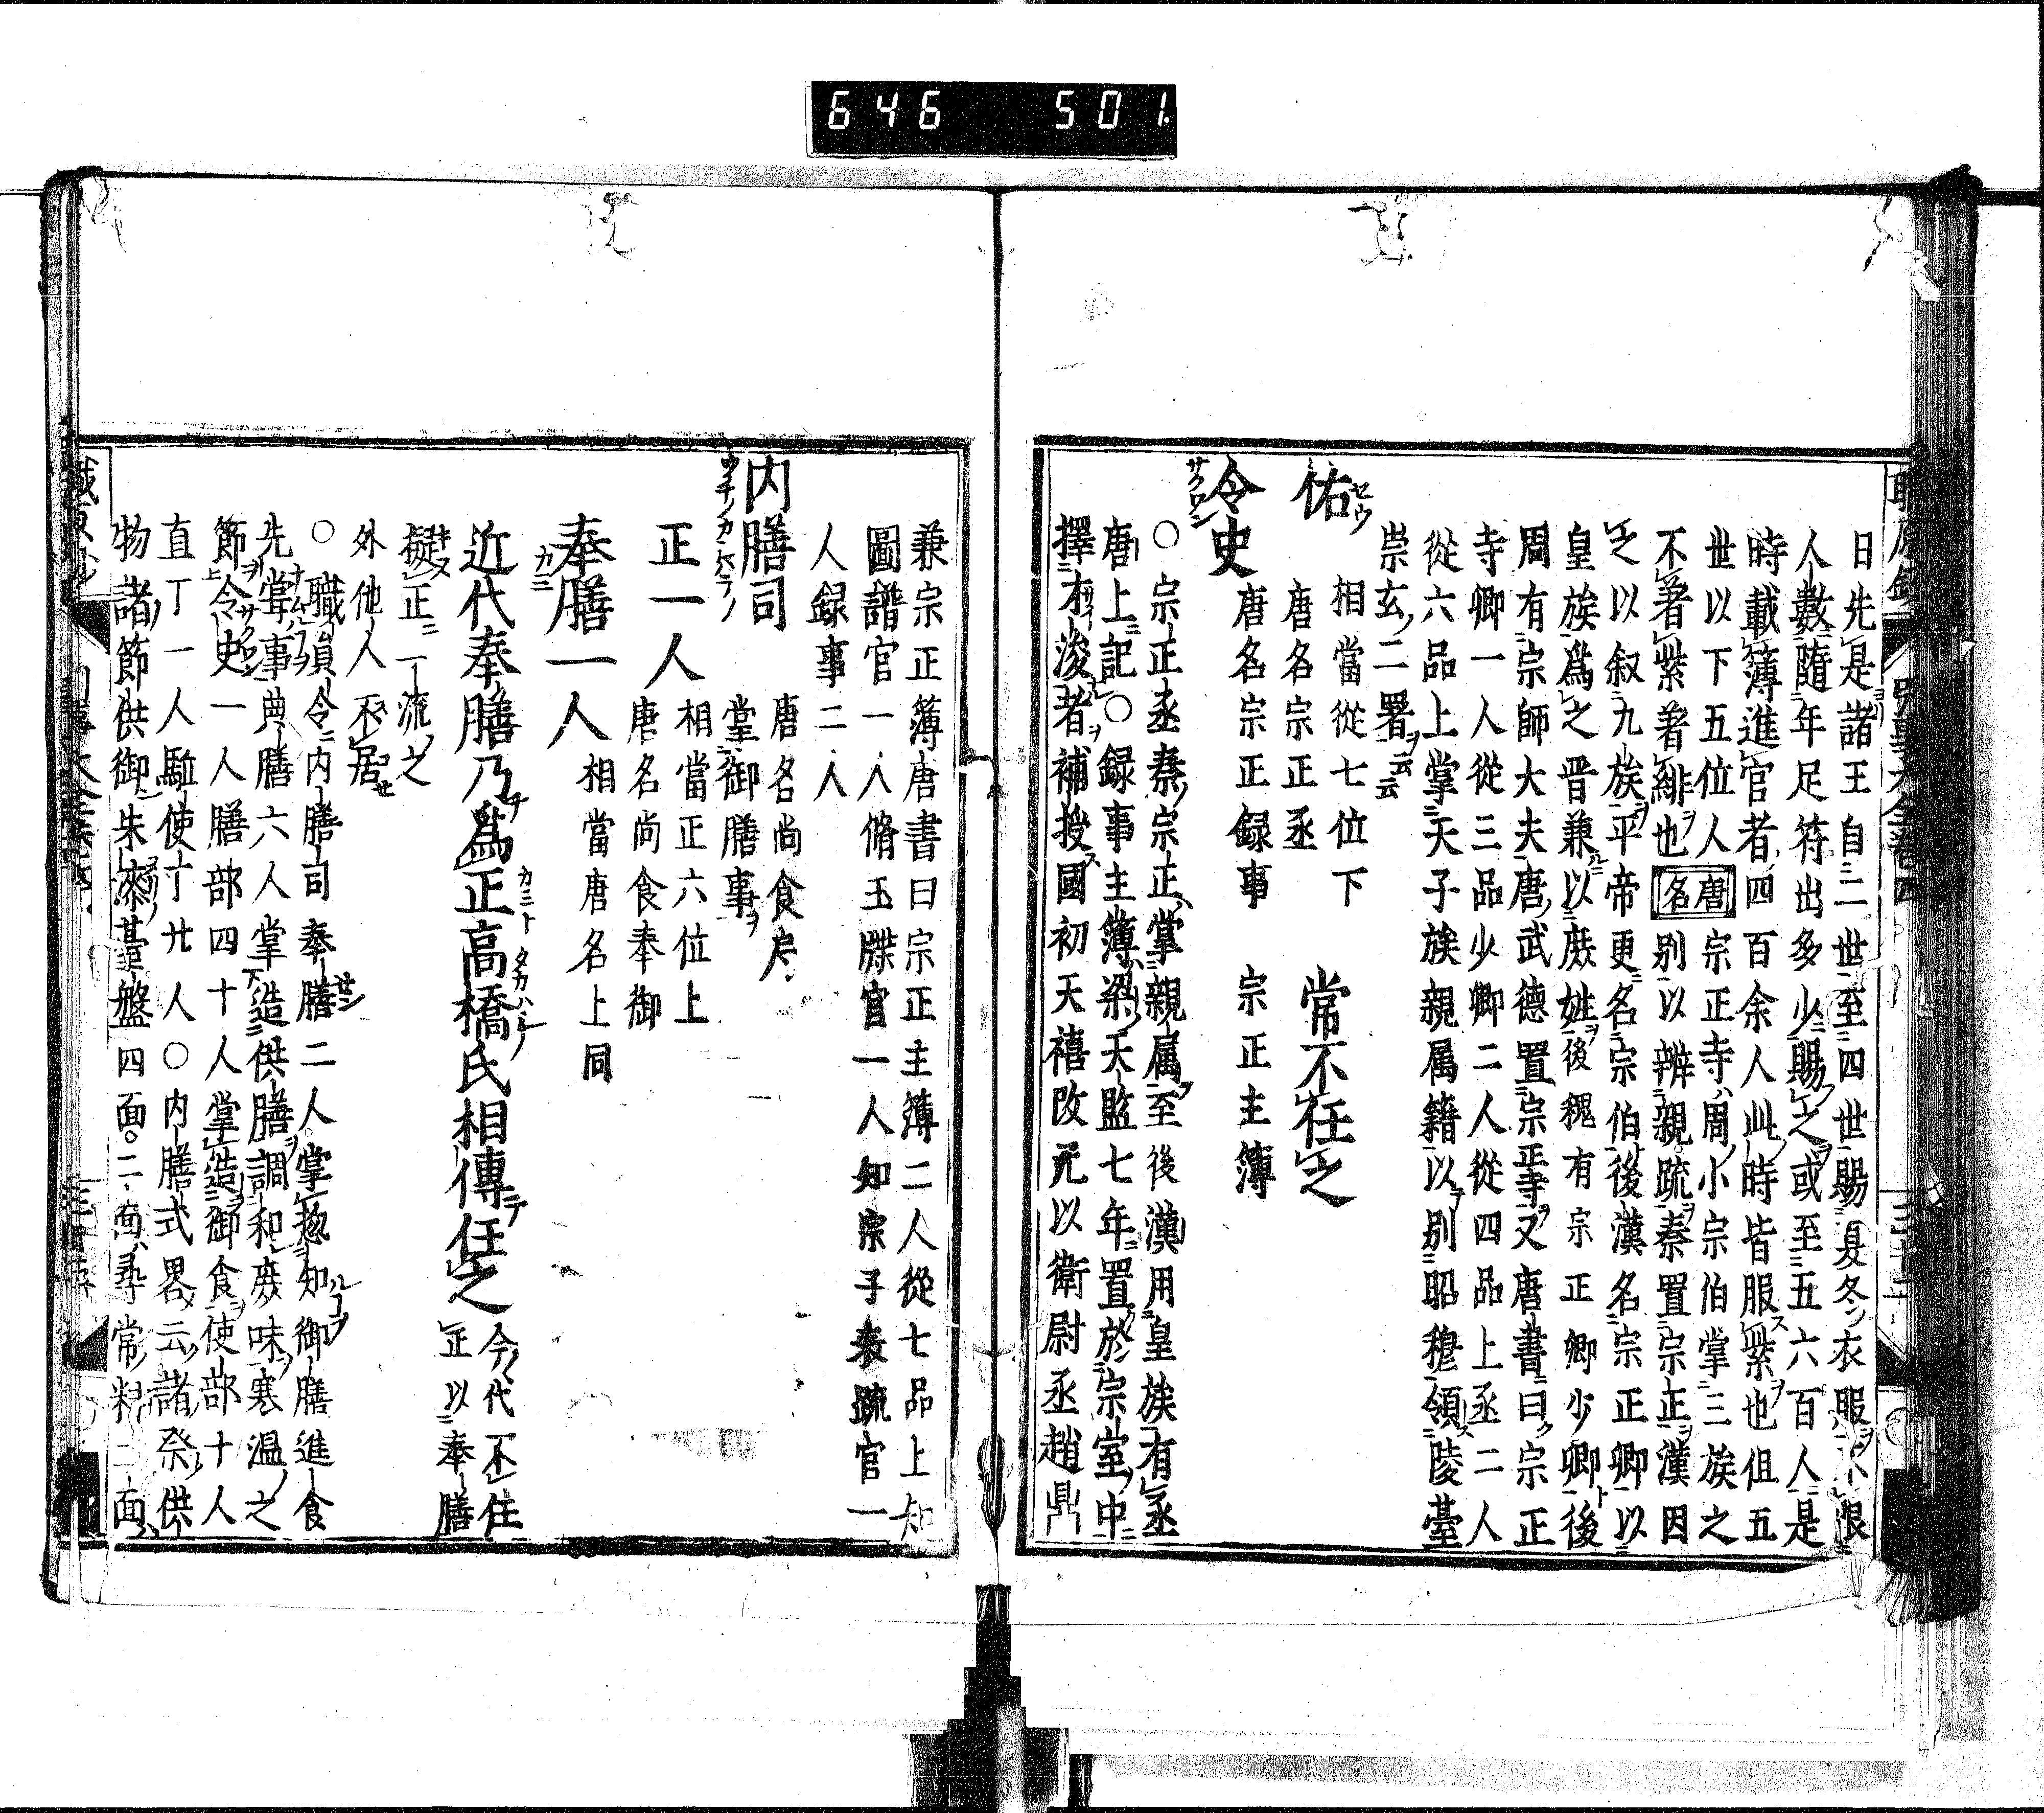 646 501.
曰先是諸王自二世至四世賜夏冬衣服不限
人數隨年足符出多少賜之或至五六百人是
時載簿進官者四百余人此時皆服紫也但五
世以下五位人
不著紫著緋也
唐名
宗正寺周小宗伯掌三族之
別以辨親疏秦置宗正漢因
之以叙九族平帝更名宗伯後漢名宗正卿以
皇族為之晋兼以庶姓後穐有宗正卿少卿後
周有宗師大夫唐武德置宗正寺又唐書曰宗正
寺卿一人從三品少卿二人從四品上丞二人
從六品上掌天子族親属籍以別昭穆領陵臺
崇玄二署云云
佑セウ 相當從七位下
唐名宗正丞 常不任之
令史サクワン 唐名宗正録事 宗正主簿
○宗正丞秦宗正掌親属至後漢用皇族有丞
唐上記○録事主簿梁天監七年置於宗室中
擇才浚者補授國初天禧改元以衛尉丞趙鼎
兼宗正簿唐書曰宗正主簿二人從七品上知
圖譜官一人脩玉牒官一人知宗子表疏官一
人録事二人
内膳司 唐名尚食局
掌御膳事
正一人 相當正六位上
唐名尚食奉御
奉膳一人 相當唐名上同
近代奉膳乃為正高橋氏相傳任之 今代不任
正以奉膳
擬正一流之
外他人不居
○職員令内膳司奉膳二人掌惣知御膳進食
先嘗事典膳六人掌造供膳調和庶味寒温之
節令史一人膳部四十人掌造御食使部十人
直丁一人駈使丁廿人○内膳式畧云諸祭供
物諸節供御朱漆臺盤四面二面尋常料二面